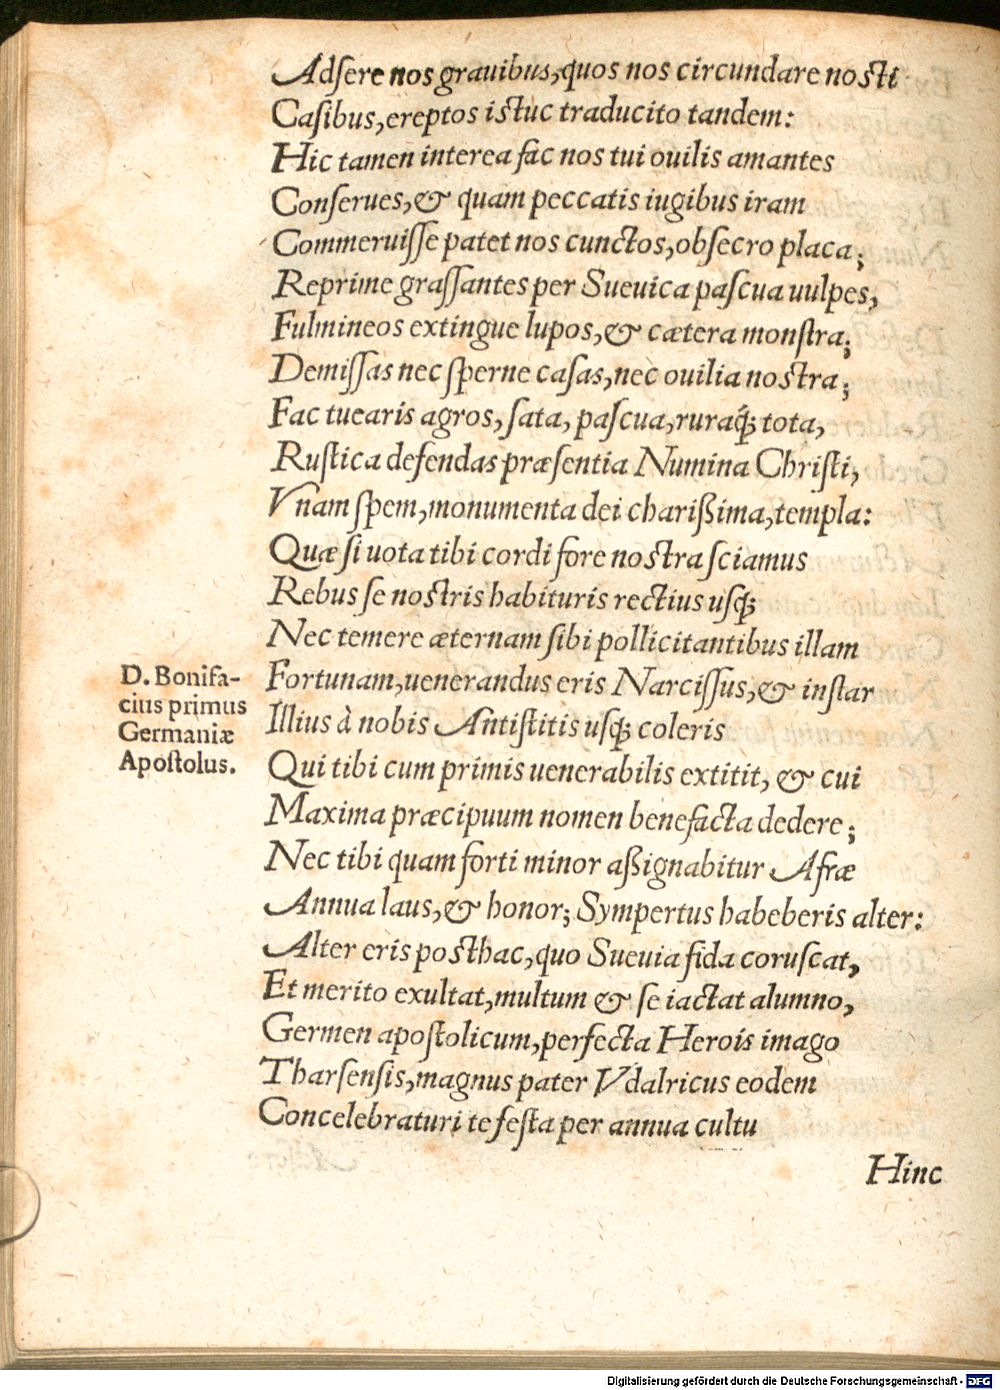 Adsere nos grauibus, quos nos circundare nosti
Casibus, ereptos istuc traducito tandem:
Hic tamen interea fac nos tui ouilis amantes
Conserues, & quam peccatis iugibus iram
Commeruisse patet nos cunctos, obsecro placa;
Reprime grassantes per Sueuica pascua uulpes,
Fulmineos extingue lupos, & cætera monstra;
Demissas nec sperne casas, nec ouilia nostra;
Fac tuearis agros, sata, pascua, ruraq́; tota,
Rustica defendas præsentia Numina Christi,
Vnam spem, monumenta dei charißima, templa:
Quæ si uota tibi cordi fore nostra sciamus
Rebus se nostris habituris rectius usq;
Nec temere æternam sibi pollicitantibus illam
D. Bonifa-
cius primus
Germaniæ
Apostolus.
Fortunam, uenerandus eris Narcissus, & instar
Illius à nobis Antistitis usq; coleris
Qui tibi cum primis uenerabilis extitit, & cui
Maxima præcipuum nomen benefacta dedere;
Nec tibi quam forti minor aßignabitur Afræ
Annua laus, & honor; Sympertus habeberis alter:
Alter eris posthac, quo Sueuia fida coruscat,
Et merito exultat, multum & se iactat alumno,
Germen apostolicum, perfecta Herois imago
Tharsensis, magnus pater Vdalricus eodem
Concelebraturi te festa per annua cultu
Hinc
Digitalisierung gefördert durch die Deutsche Forschungsgemeinschaft - DFG